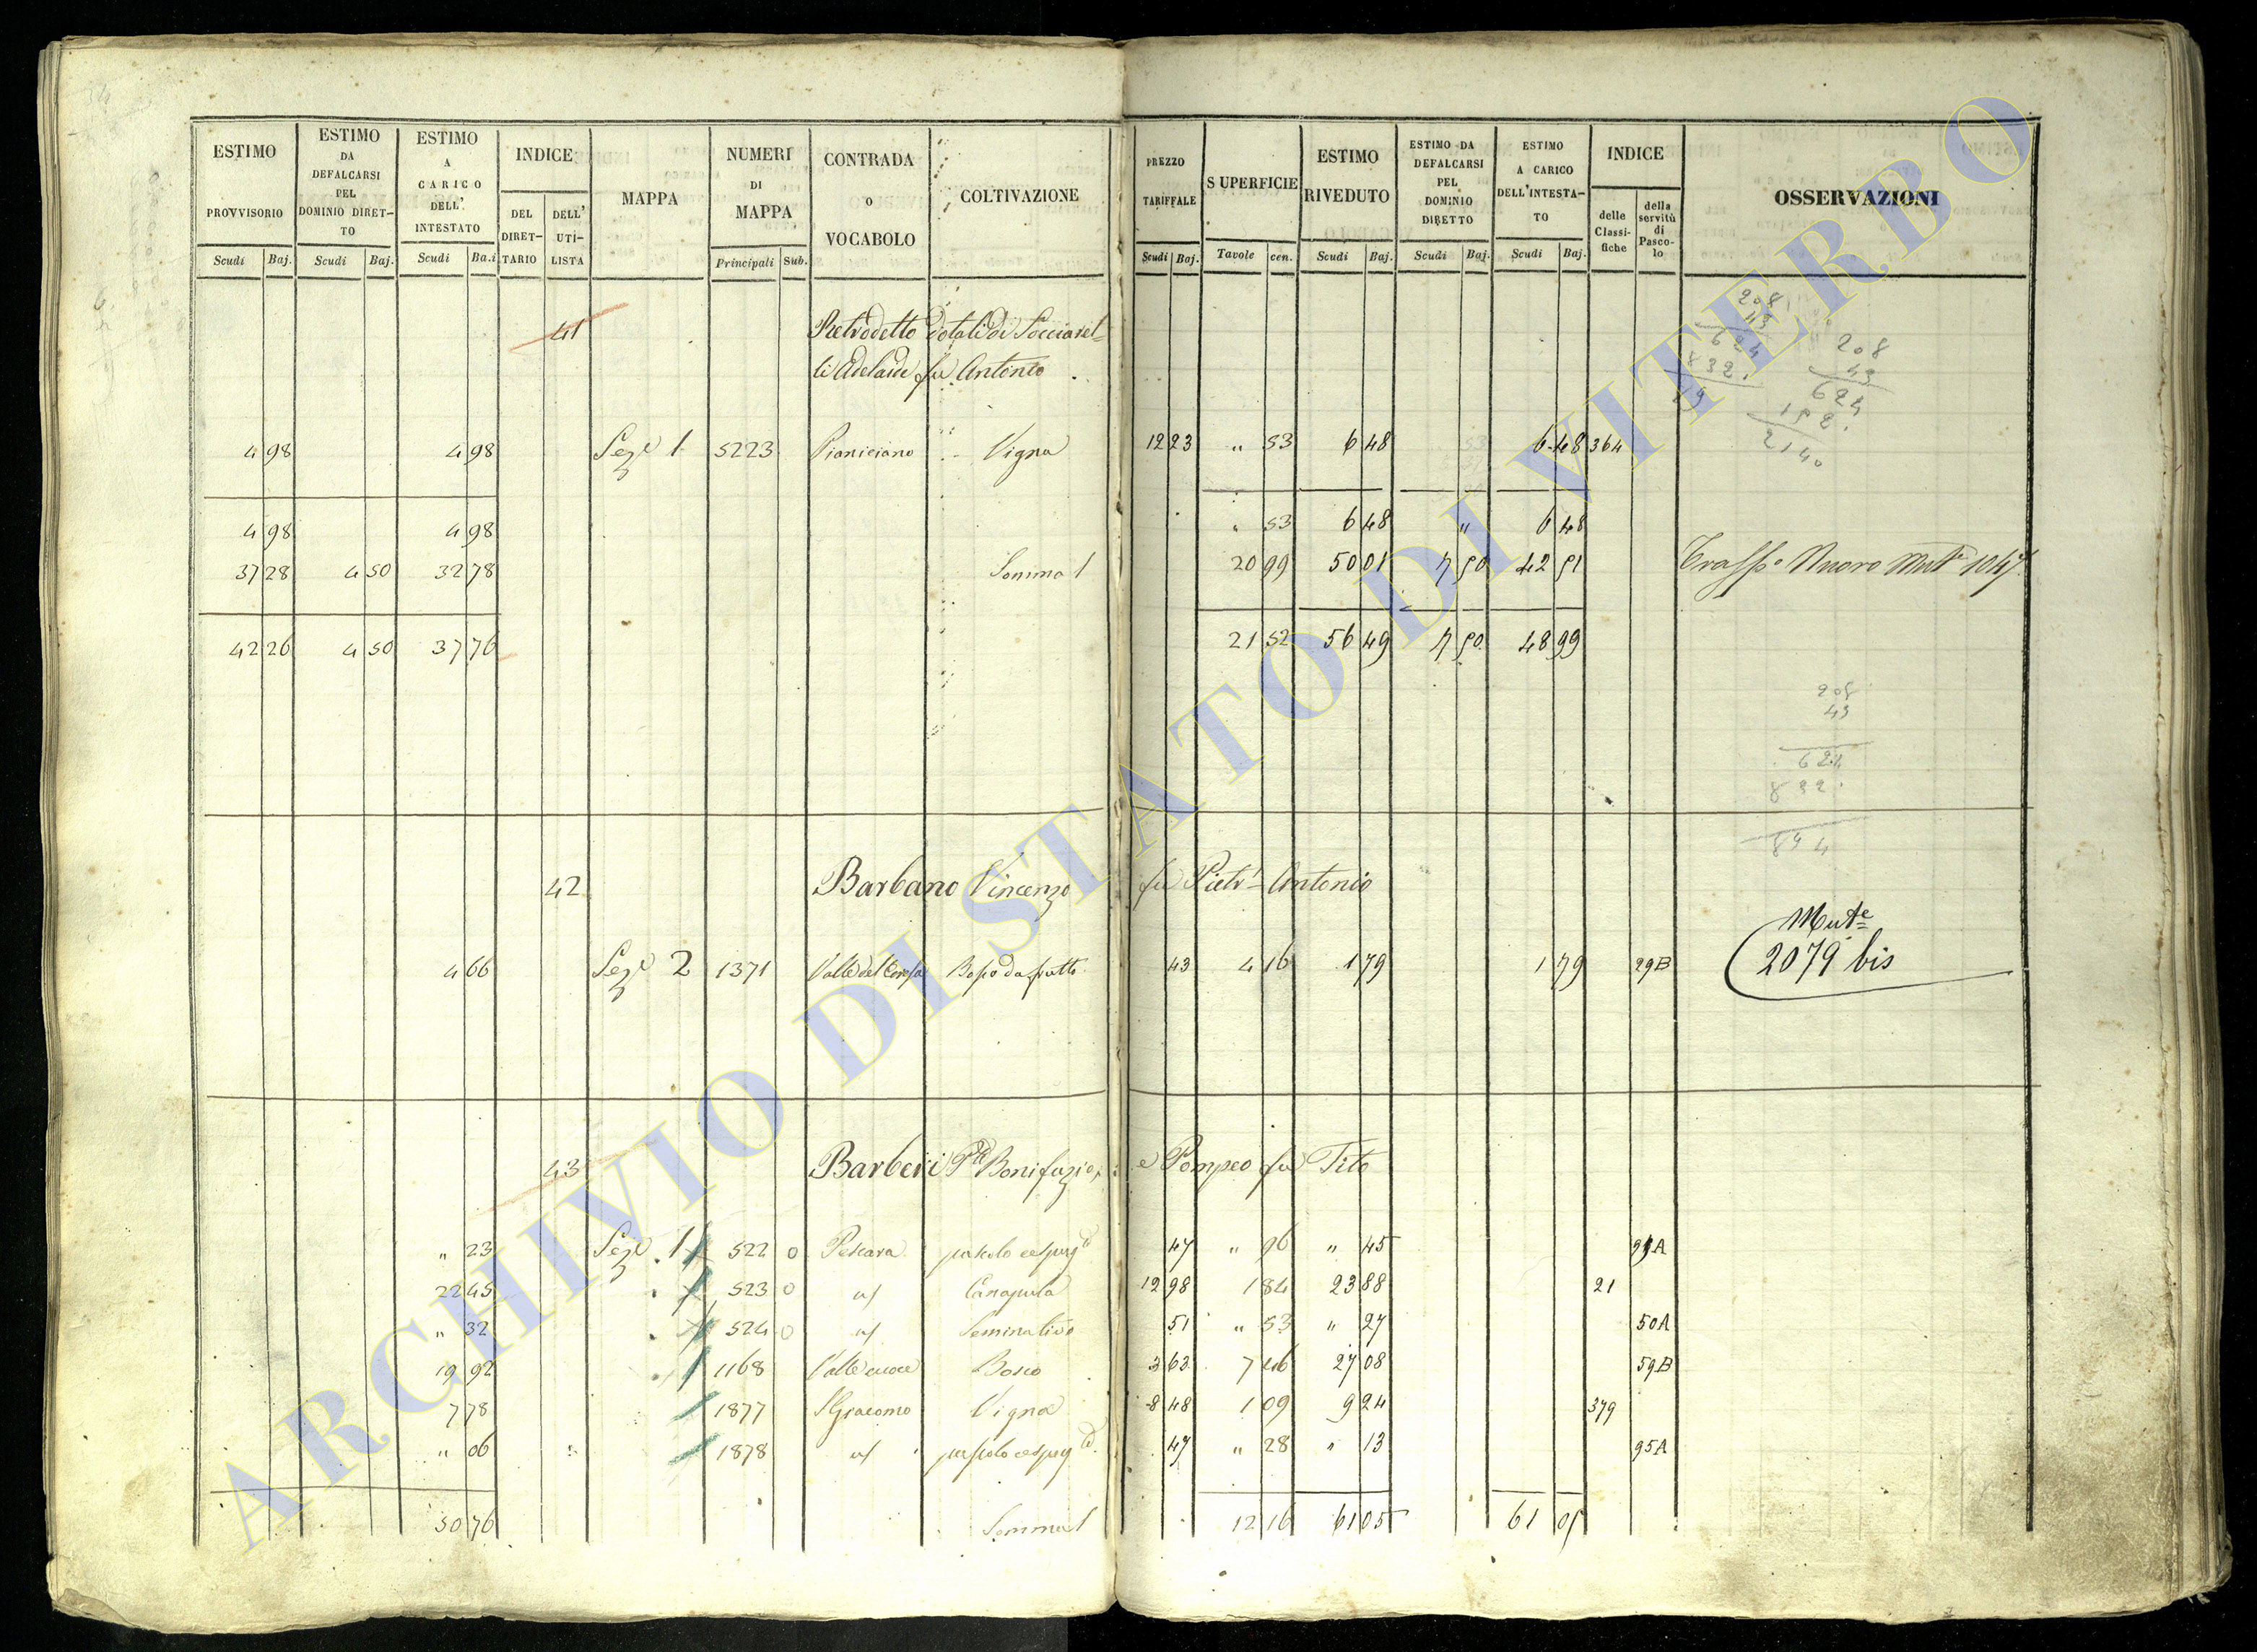 ESTIMO PROVVISORIO Scudi Baj.
ESTIMO DA DEFALCARSI PEL DOMINIO DIRET-TO Scudi Baj.
ESTIMO A CARICO DELL' INTESTATO Scudi Ba.i
INDICE DEL DIRET-TARIO DELL' UTI-LISTA
MAPPA
NUMERI DI MAPPA Principali Sub.
CONTRADA O VOCABOLO
COLTIVAZIONE
PREZZO TARIFFALE Scudi Baj.
SUPERFICIE Tavole cen.
ESTIMO RIVEDUTO Scudi Baj.
ESTIMO DA DEFALCARSI PEL DOMINIO DIRETTO Scudi Baj.
ESTIMO A CARICO DELL'INTESTA-TO Scudi Baj.
INDICE delle Classi-fiche della servitù di Pasco-lo
OSSERVAZIONI
41 dotali di
li Adelaide fu Antonio
4 98 4 98 Sez.e 1 5223 Pianiciano Vigna 12 23 " 53 6 48 6 48 364
4 98 4 98 " 53 6 48 " 6 48
37 28 4 50 32 78 Somma 20 99 50 01 7 50 42 51 Nuovo 1047
42 26 4 50 37 76 21 52 56 49 7 50 48 99
42 Barbano Vincenzo fu Pietr' Antonio
4 66 Sez.e 2 1371 Bosco da frutto 43 4 16 1 79 1 79 29B Mut.e
2079 bis
43 Barberi Bonifazio, e Pompeo fu Tito
" 23 Sez.e 1 522 Pescara pascolo cespug.to 47 " 96 " 45
22 45 523 Canapula 12 98 1 84 23 88 21
" 32 524 Seminativo 51 " 53 " 27 50A
19 92 1168 Bosco 3 63 7 46 27 08 59B
7 78 1877 S Giacomo Vigna 8 48 1 09 9 24 379
" 06 1878 pascolo cespug.to 47 " 28 " 13 95A
50 76 Somma 12 16 61 05 61 05
ARCHIVIO DI STATO DI VITERBO